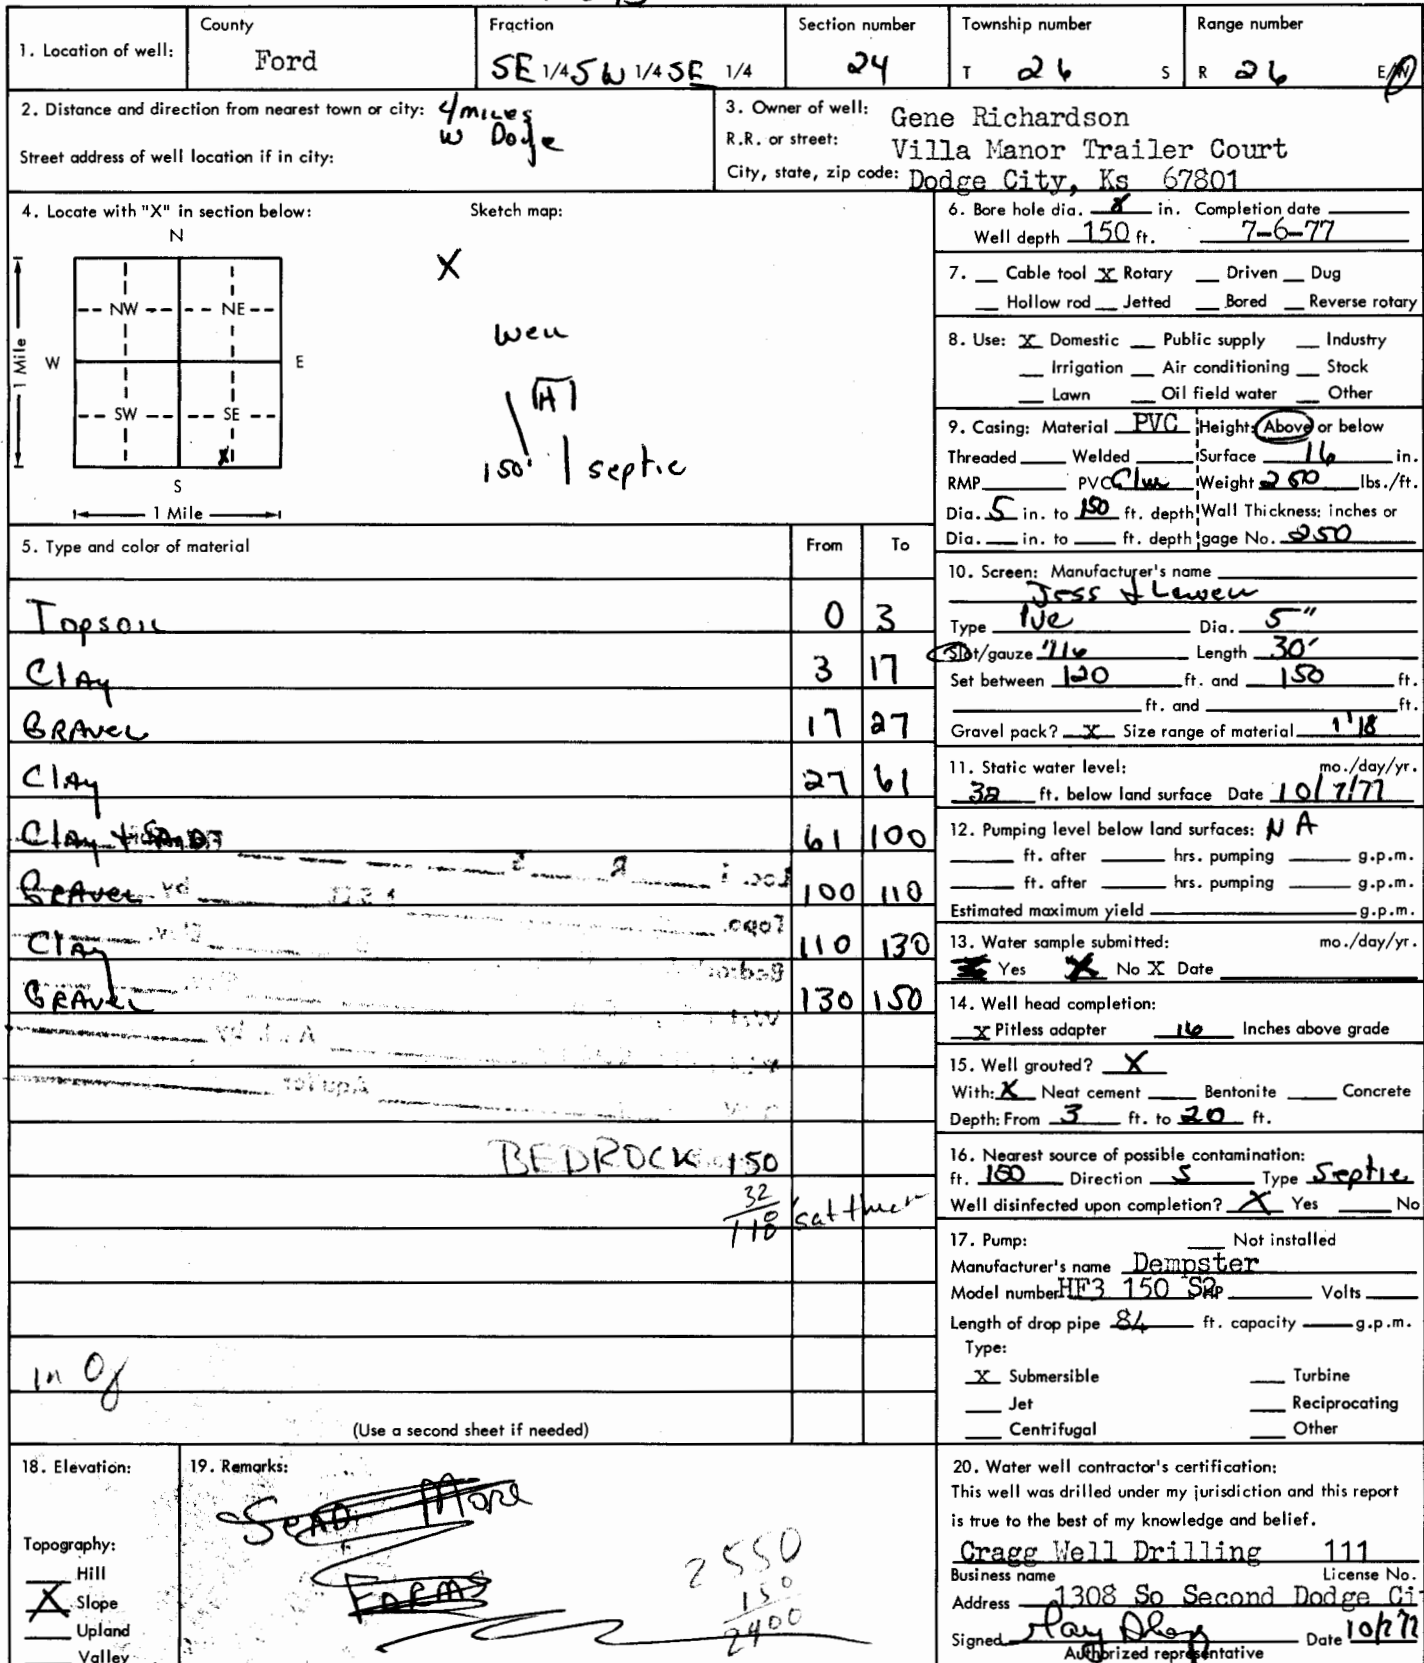 1. Location of well: County Ford Fraction SE 1/4 SW 1/4 SE 1/4 Section number 24 Township number T 26 S Range number R 26 E/W
2. Distance and direction from nearest town or city: 4 miles
W Dodge
Street address of well location if in city:
3. Owner of well: Gene Richardson
R.R. or street: Villa Manor Trailer Court
City, state, zip code: Dodge City, Ks 67801
4. Locate with "X" in section below:
N
NW NE
W E
SW SE
X
S
1 Mile
1 Mile
Sketch map:
X
well
H
150' septic
5. Type and color of material From To
Topsoil 0 3
Clay 3 17
Gravel 17 27
Clay 27 61
Clay + Sand 61 100
Gravel 100 110
Clay 110 130
Gravel 130 150
BEDROCK 150
32
118 sat
in
(Use a second sheet if needed)
6. Bore hole dia. 8 in. Completion date
Well depth 150 ft. 7-6-77
7. Cable tool X Rotary Driven Dug
Hollow rod Jetted Bored Reverse rotary
8. Use: X Domestic Public supply Industry
Irrigation Air conditioning Stock
Lawn Oil field water Other
9. Casing: Material PVC Height: Above or below
Threaded Welded Surface 16 in.
RMP PVC Glue Weight 250 lbs./ft.
Dia. 5 in. to 150 ft. depth Wall Thickness: inches or
Dia. in. to ft. depth gage No. 250
10. Screen: Manufacturer's name
Type PVC Dia. 5"
Slot/gauze Length 30'
Set between 120 ft. and 150 ft.
ft. and ft.
Gravel pack? X Size range of material
11. Static water level: mo./day/yr.
32 ft. below land surface Date 10/7/77
12. Pumping level below land surfaces: NA
ft. after hrs. pumping g.p.m.
ft. after hrs. pumping g.p.m.
Estimated maximum yield g.p.m.
13. Water sample submitted: mo./day/yr.
Yes No X Date
14. Well head completion:
X Pitless adapter 16 Inches above grade
15. Well grouted? X
With: X Neat cement Bentonite Concrete
Depth: From 3 ft. to 20 ft.
16. Nearest source of possible contamination:
ft. 150 Direction S Type Septic
Well disinfected upon completion? X Yes No
17. Pump: Not installed
Manufacturer's name Dempster
Model number HF3 150 S2 HP Volts
Length of drop pipe 84 ft. capacity g.p.m.
Type:
X Submersible Turbine
Jet Reciprocating
Centrifugal Other
18. Elevation:
Topography:
Hill
X Slope
Upland
Valley
19. Remarks:
Send More
Forms
2550
150
2400
20. Water well contractor's certification:
This well was drilled under my jurisdiction and this report
is true to the best of my knowledge and belief.
Cragg Well Drilling 111
Business name License No.
Address 1308 So Second Dodge Ci
Signed Date 10/7/77
Authorized representative